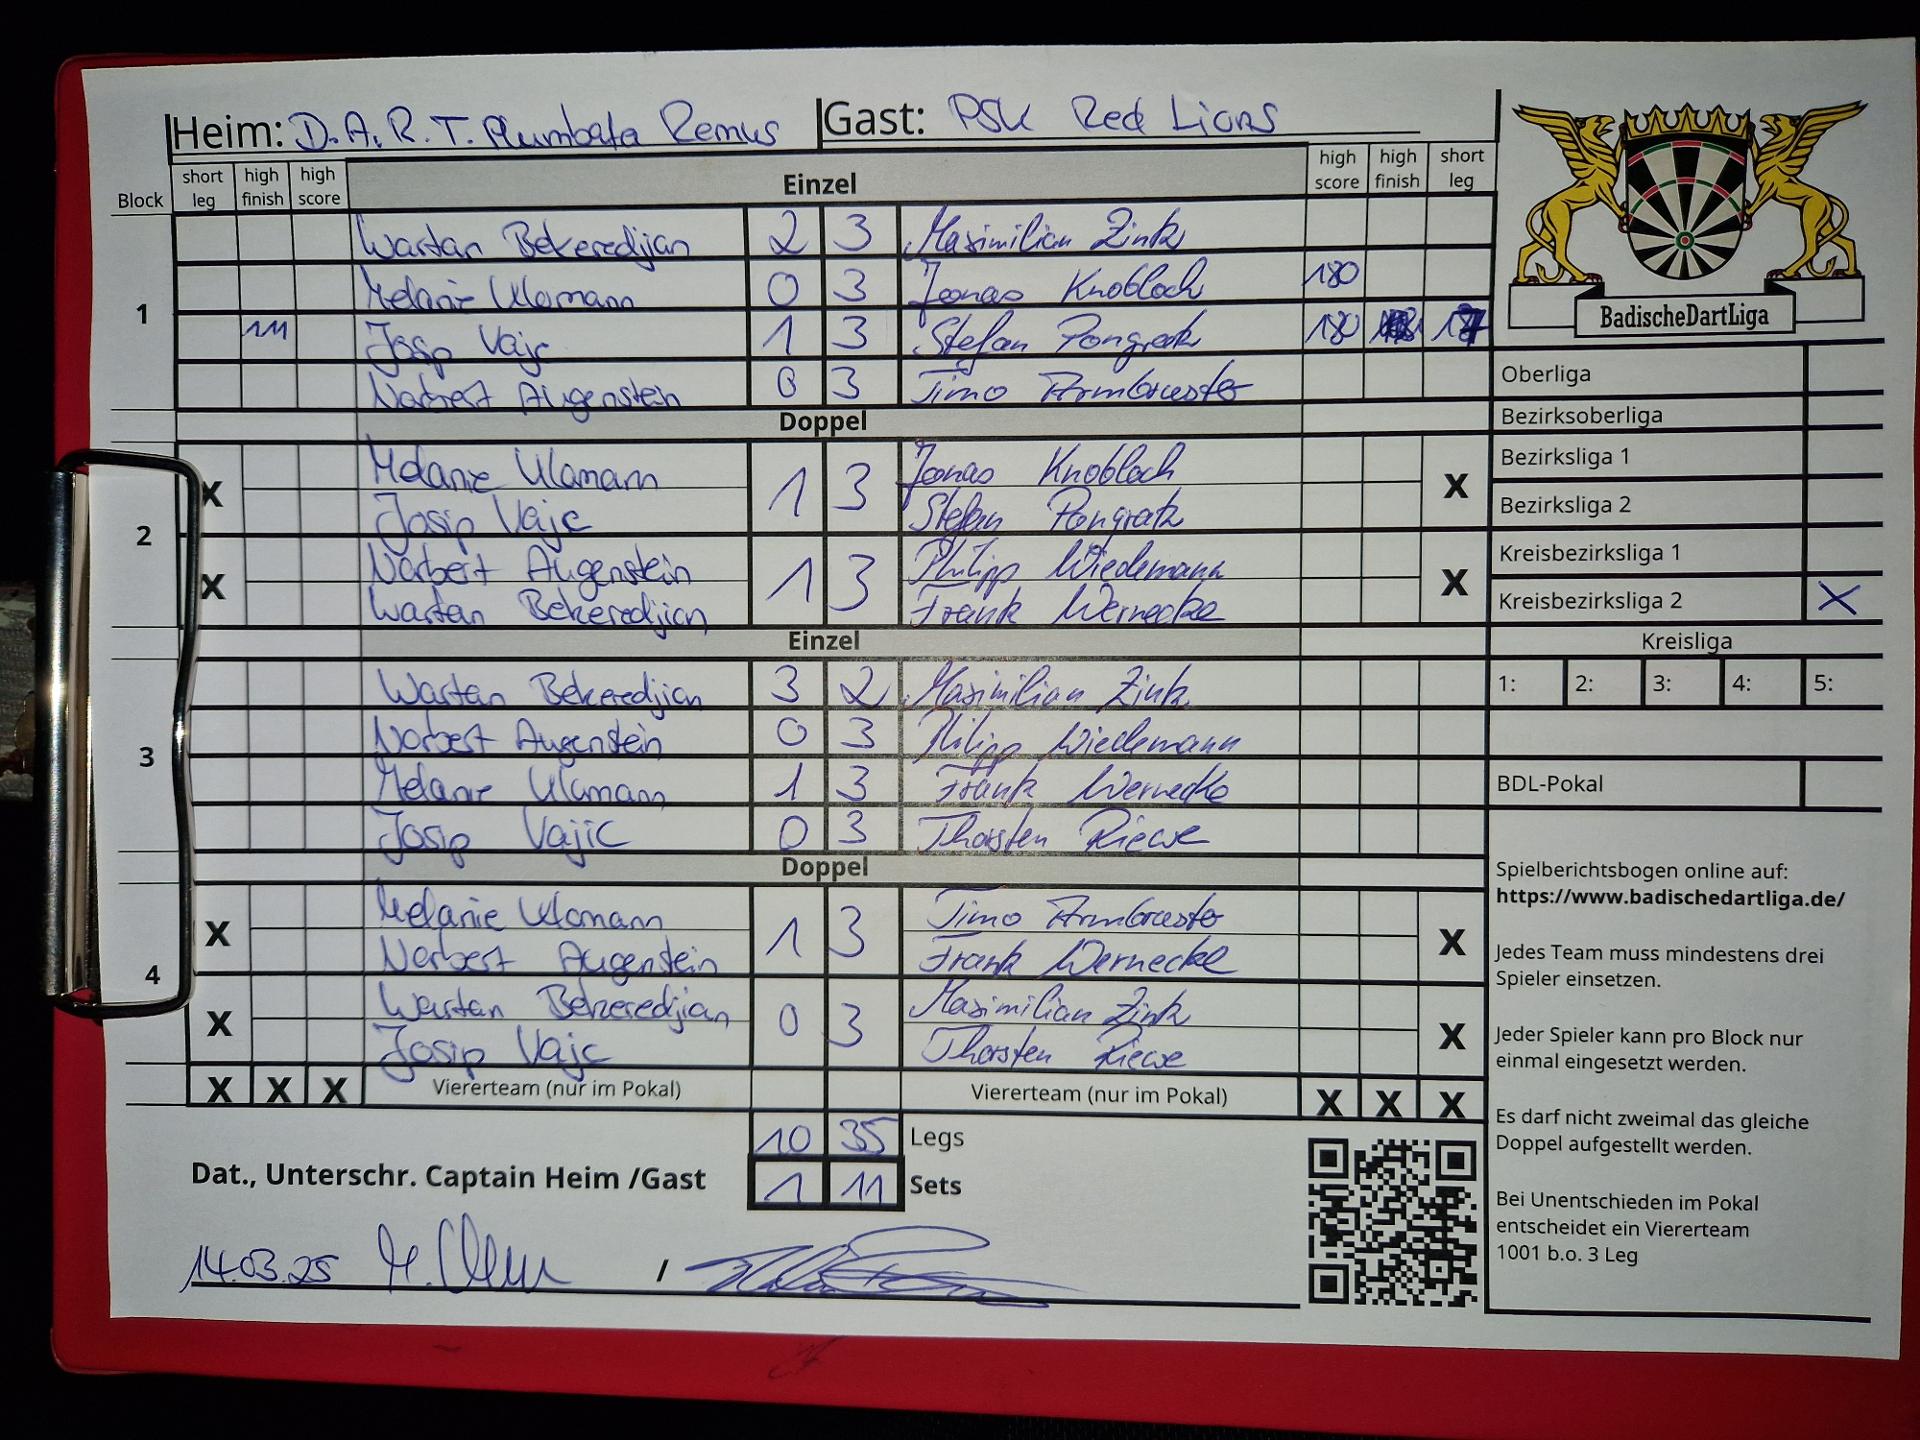 Heim: D.A.R.T. Plumbata Remus Gast: PSK Red Lions
Block short leg high finish high score Einzel high score high finish short leg
Wartan Bekeredjian 2 3 Maximilian Zink
Melanie Ulamann 0 3 Jonas Knobloch 180
1 111 Josip Vajc 1 3 Stefan Pongratz 180
Norbert Augenstein 0 3 Timo Armbruster
Doppel
Melanie Ulamann 1 3 Jonas Knobloch
X Josip Vajc Stefan Pongratz X
2
Norbert Augenstein 1 3 Philipp Wiedemann
X Wartan Bekeredjian Frank Wernecke X
Einzel
Wartan Bekeredjian 3 2 Maximilian Zink
Norbert Augenstein 0 3 Philipp Wiedemann
3 Melanie Ulamann 1 3 Frank Wernecke
Josip Vajic 0 3 Thorsten Riewe
Doppel
Melanie Ulamann 1 3 Timo Armbruster
X Norbert Augenstein Frank Wernecke X
4
Wartan Bekeredjian 0 3 Maximilian Zink
X Josip Vajc Thorsten Riewe X
X X X Viererteam (nur im Pokal) Viererteam (nur im Pokal) X X X
10 35 Legs
Dat., Unterschr. Captain Heim /Gast 1 11 Sets
14.03.25 /
BadischeDartLiga
Oberliga
Bezirksoberliga
Bezirksliga 1
Bezirksliga 2
Kreisbezirksliga 1
Kreisbezirksliga 2 X
Kreisliga
1: 2: 3: 4: 5:
BDL-Pokal
Spielberichtsbogen online auf:
https://www.badischedartliga.de/
Jedes Team muss mindestens drei
Spieler einsetzen.
Jeder Spieler kann pro Block nur
einmal eingesetzt werden.
Es darf nicht zweimal das gleiche
Doppel aufgestellt werden.
Bei Unentschieden im Pokal
entscheidet ein Viererteam
1001 b.o. 3 Leg